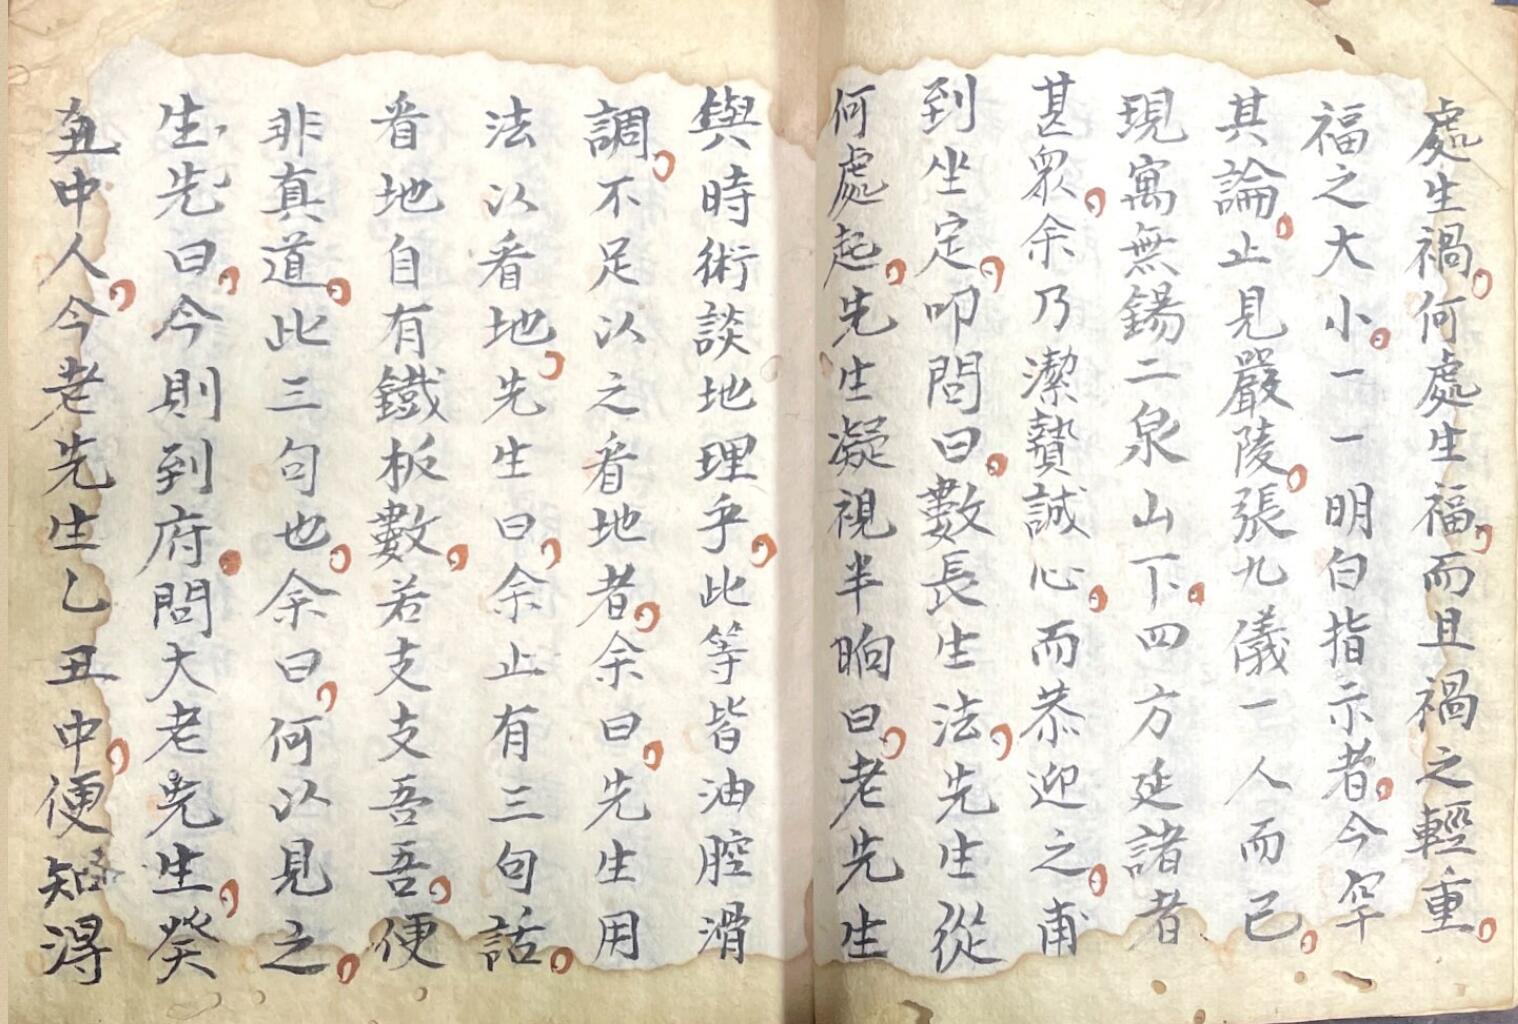 處生禍。何處生福。而且禍之輕重。
福之大小。一一明白指示者。今罕
其論。止見嚴陵。張九儀一人而已。
現寓無錫二泉山下。四方延諸者
甚眾。余乃潔贄誠心。而恭迎之。甫
到坐定。叩問曰。數長生法。先生從
何處起。先生凝視半晌曰。老先生
與時術談地理乎。此等皆油腔滑
調。不足以之看地者。余曰。先生用
法以看地。先生曰。余止有三句話。
看地自有鐵板數。若支支吾吾。便
非真道。此三句也。余曰。何以見之。
生先曰。今則到府。問大老先生。癸
丑中人。今老先生乙丑中。便知得